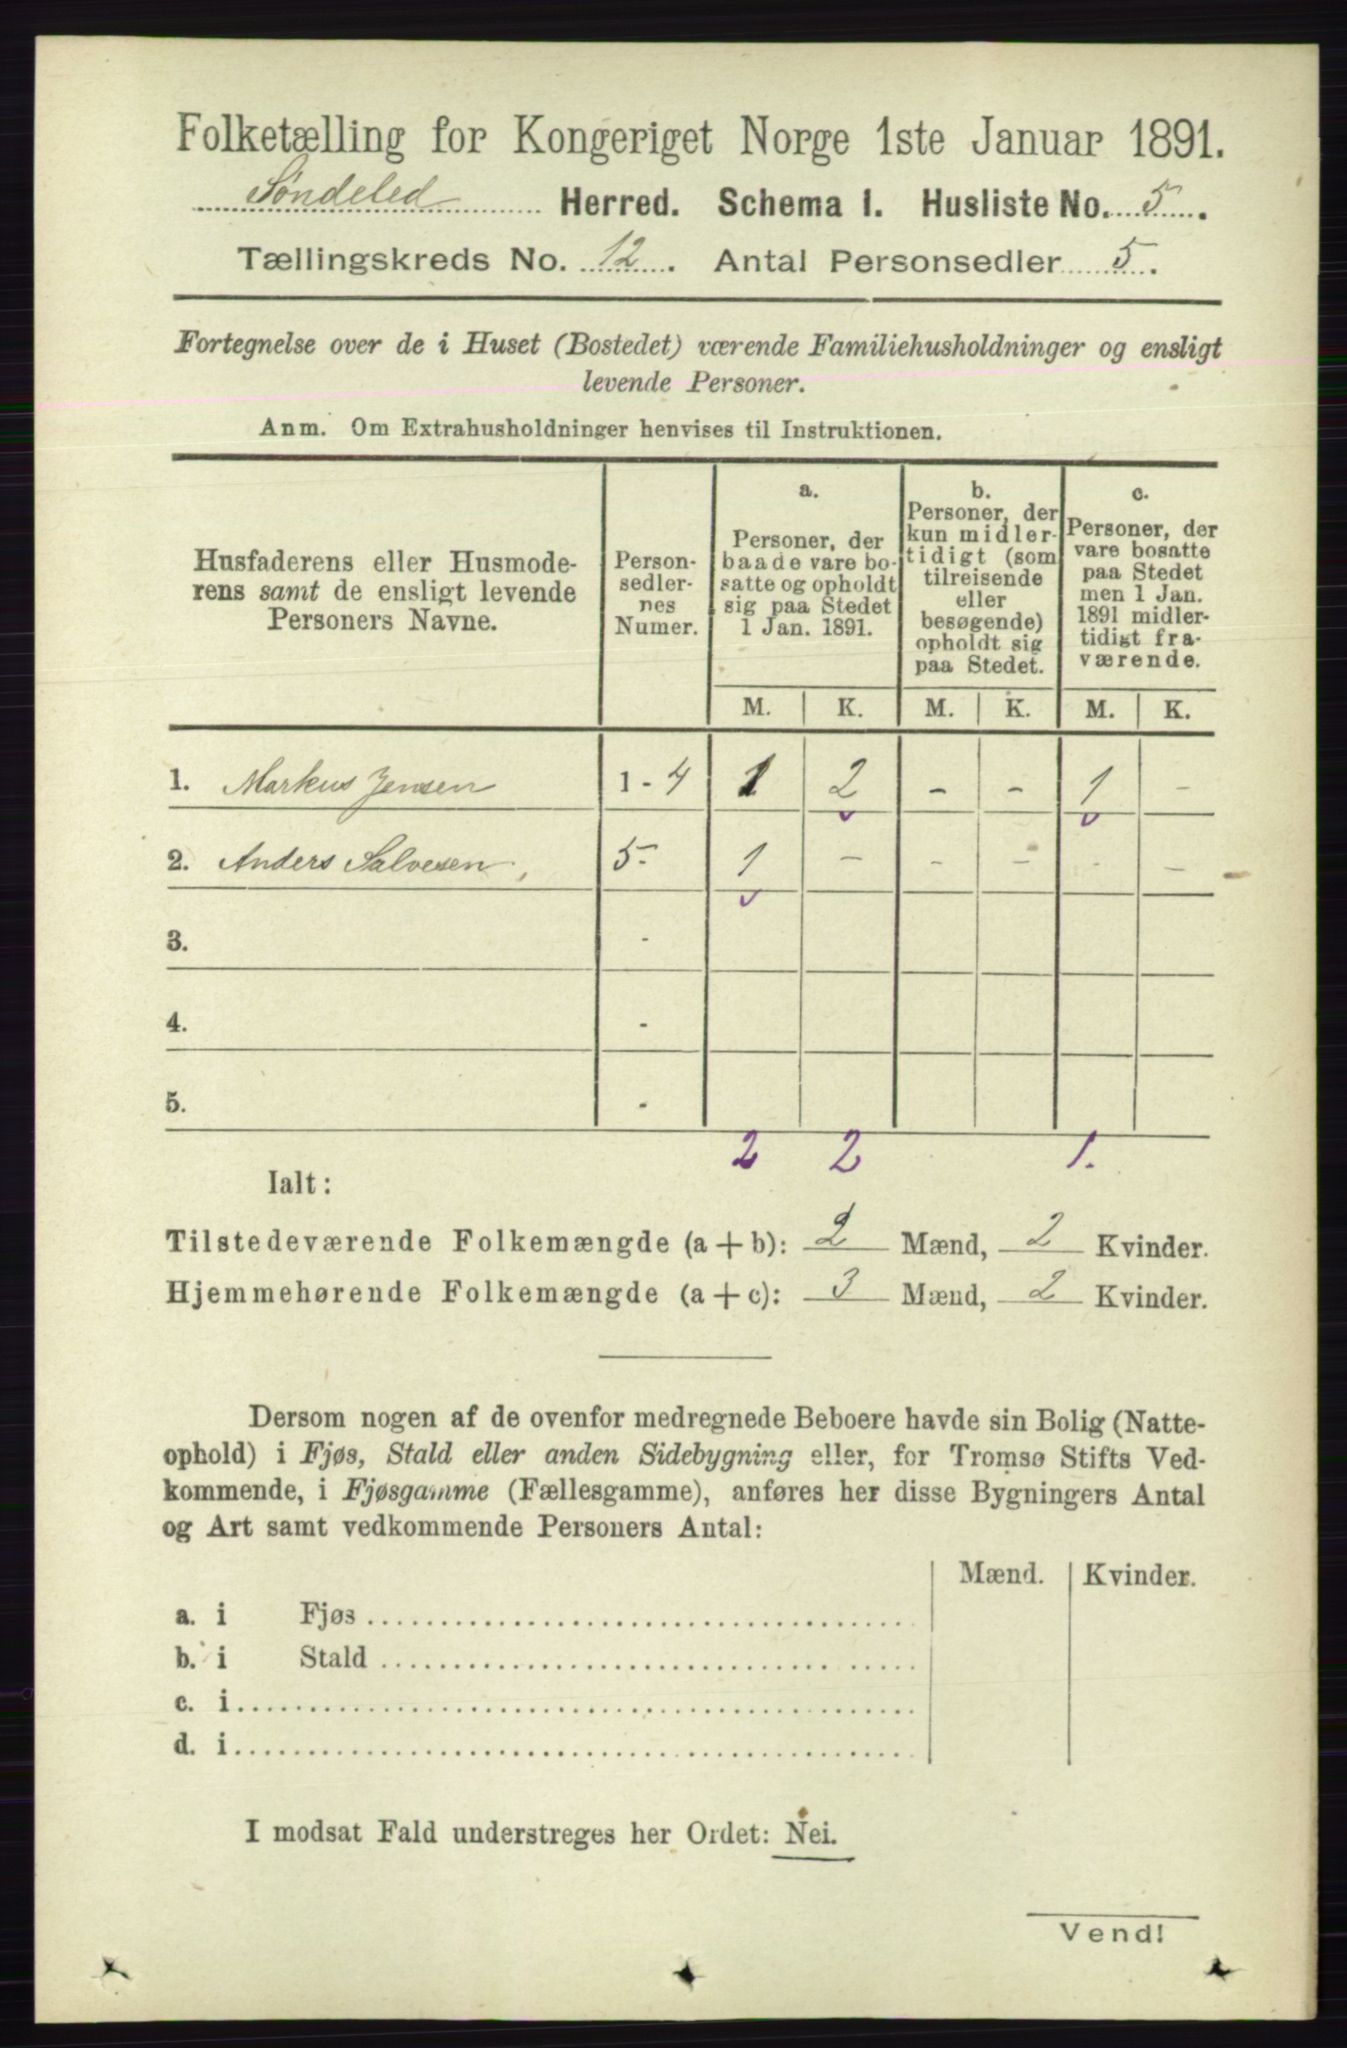 Folketælling for Kongeriget Norge 1ste Januar 1891.
Søndeled Herred. Schema I. Husliste No. 5.
Tællingskreds No. 12. Antal Personsedler 5.
Fortegnelse over de i Huset (Bostedet) værende Familiehusholdninger og ensligt
levende Personer.
Anm. Om Extrahusholdninger henvises til Instruktionen.
Husfaderens eller Husmode-
rens samt de ensligt levende
Personers Navne.
Person-
sedler-
nes
Numer.
a.
Personer, der
baade vare bo-
satte og opholdt
sig paa Stedet
1 Jan. 1891.
b.
Personer, der
kun midler-
tidigt (som
tilreisende
eller
besøgende)
opholdt sig
paa Stedet.
c.
Personer, der
vare bosatte
paa Stedet
men 1 Jan.
1891 midler-
tidigt fra-
værende.
M. K. M. K. M. K.
1. Markus Jensen 1 - 4 1 2 - - 1 -
2. Anders Salvesen 5 - 1 - - - - -
3. -
4. -
5. -
2 2 1.
Ialt:
Tilstedeværende Folkemængde (a + b): 2 Mænd, 2 Kvinder.
Hjemmehørende Folkemængde (a + c): 3 Mænd, 2 Kvinder.
Dersom nogen af de ovenfor medregnede Beboere havde sin Bolig (Natte-
ophold) i Fjøs, Stald eller anden Sidebygning eller, for Tromsø Stifts Ved-
kommende, i Fjøsgamme (Fællesgamme), anføres her disse Bygningers Antal
og Art samt vedkommende Personers Antal:
Mænd. Kvinder.
a. i Fjøs
b. i Stald
c. i
d. i
I modsat Fald understreges her Ordet: Nei.
Vend!